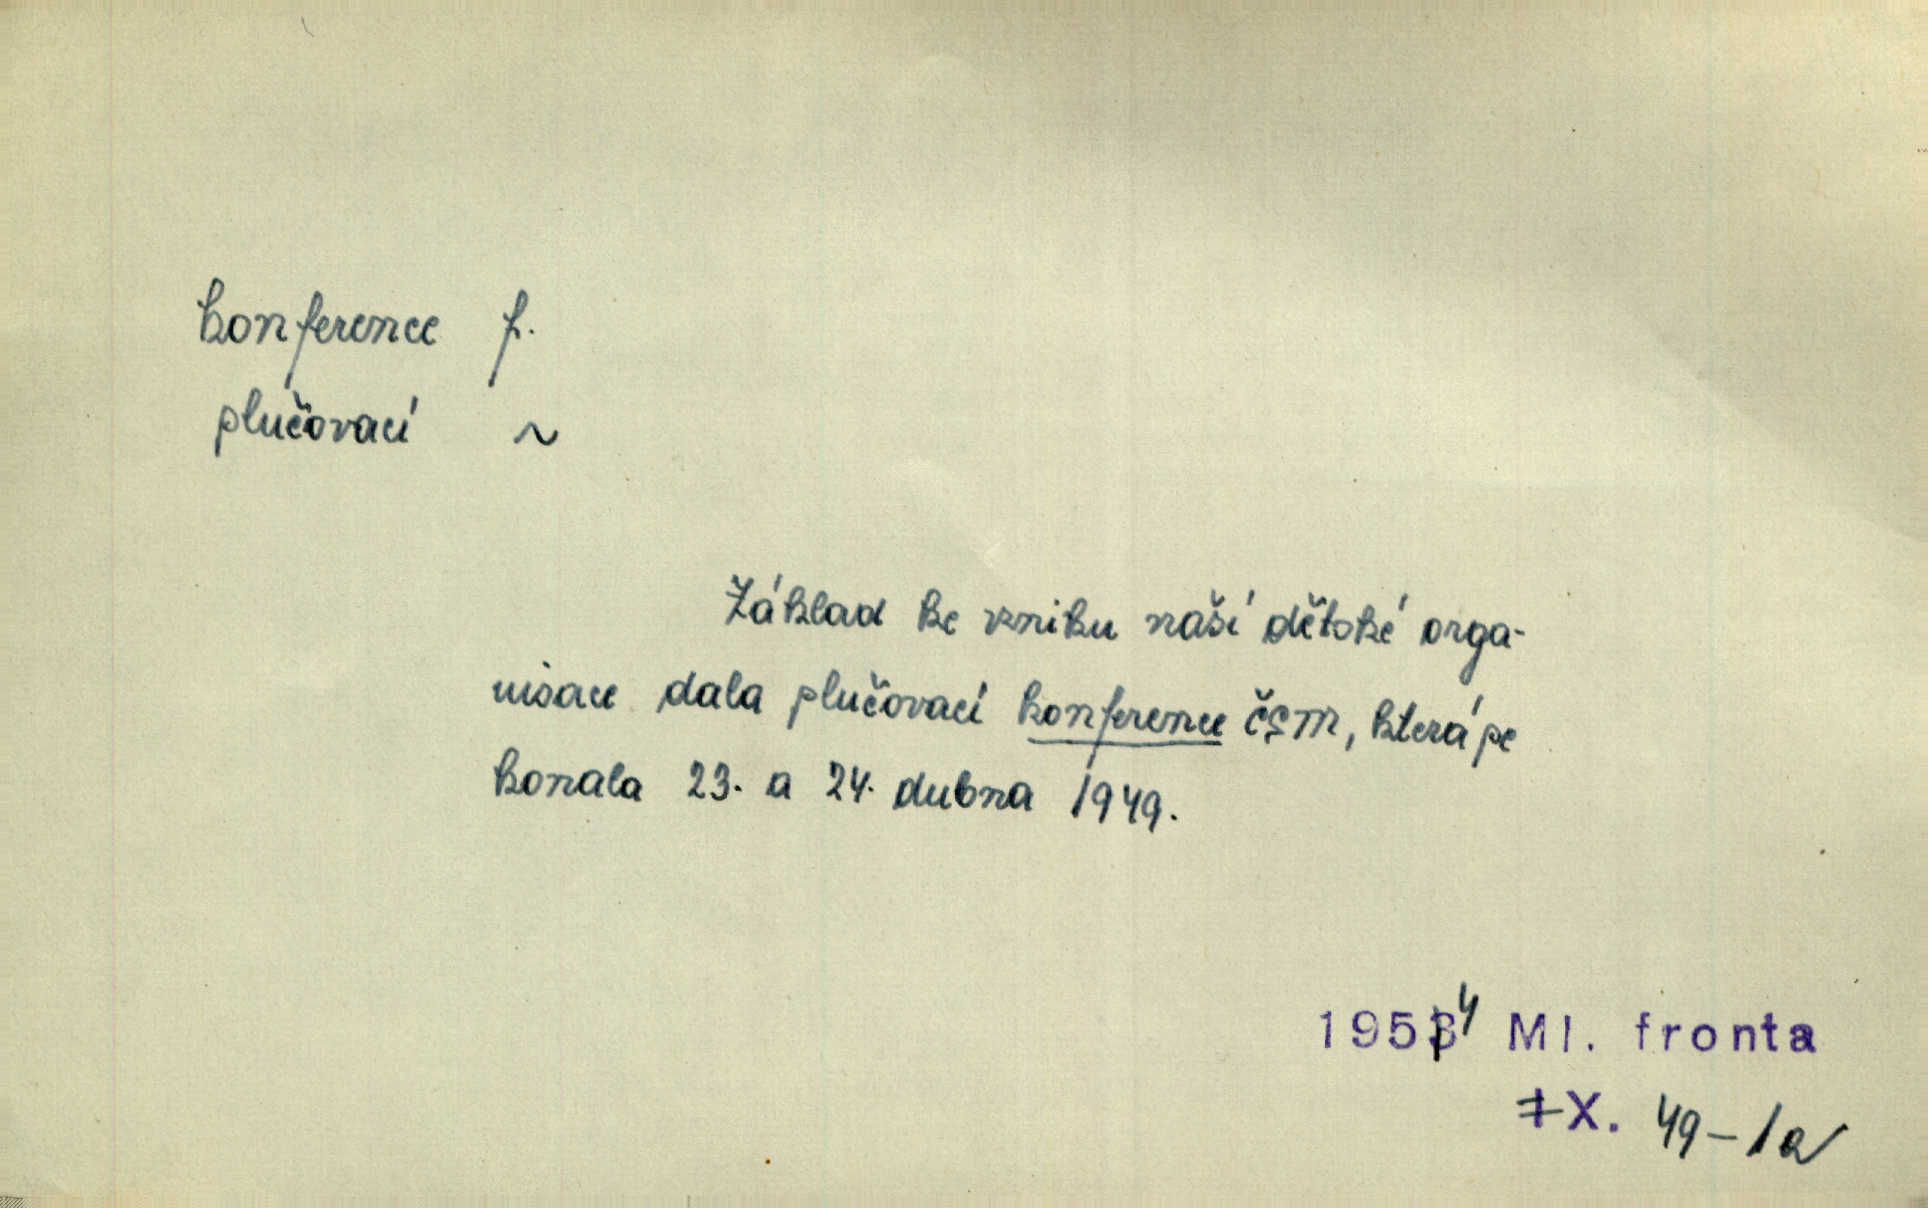 konference f.
slučovací ~
Základ ke vzniku naší dětské orga-
nisace dala slučovací konference ČSM, která se
konala 23. a 24. dubna 1949.
1954 Ml. fronta
X. 49-1a